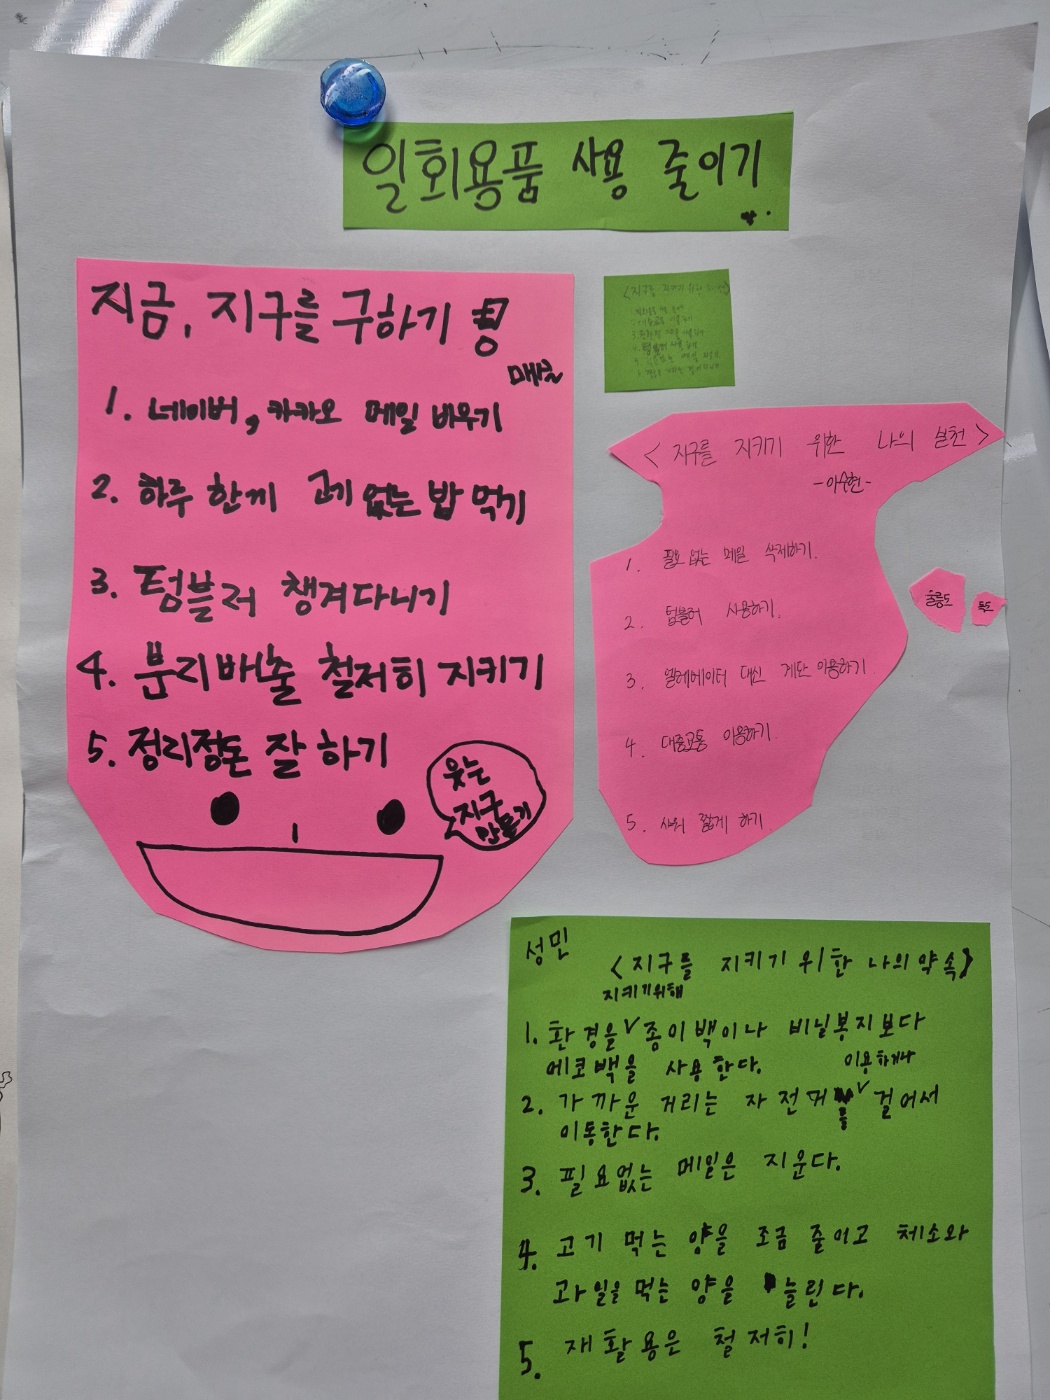 일회용품 사용 줄이기
지금, 지구를 구하기
1. 네이버, 카카오 메일 비우기
2. 하루 한끼 고기 없는 밥 먹기
3. 텀블러 챙겨다니기
4. 분리배출 철저히 지키기
5. 정리정돈 잘 하기
웃는
지구
만들기
<지구를 지키기 위한 나의 실천>
-이수현-
1. 필요 없는 메일 삭제하기.
2. 텀블러 사용하기.
3. 엘레베이터 대신 계단 이용하기
4. 대중교통 이용하기
5. 샤워 짧게 하기
울릉도
독도
성민
<지구를 지키기 위한 나의 약속>
지키기위해
1. 환경을 ∨ 종이백이나 비닐봉지보다
에코백을 사용한다.
이용하거나
2. 가까운 거리는 자전거를 ∨ 걸어서
이동한다.
3. 필요없는 메일은 지운다.
4. 고기 먹는 양을 조금 줄이고 체소와
과일을 먹는 양을 늘린다.
5. 재활용은 철저히!